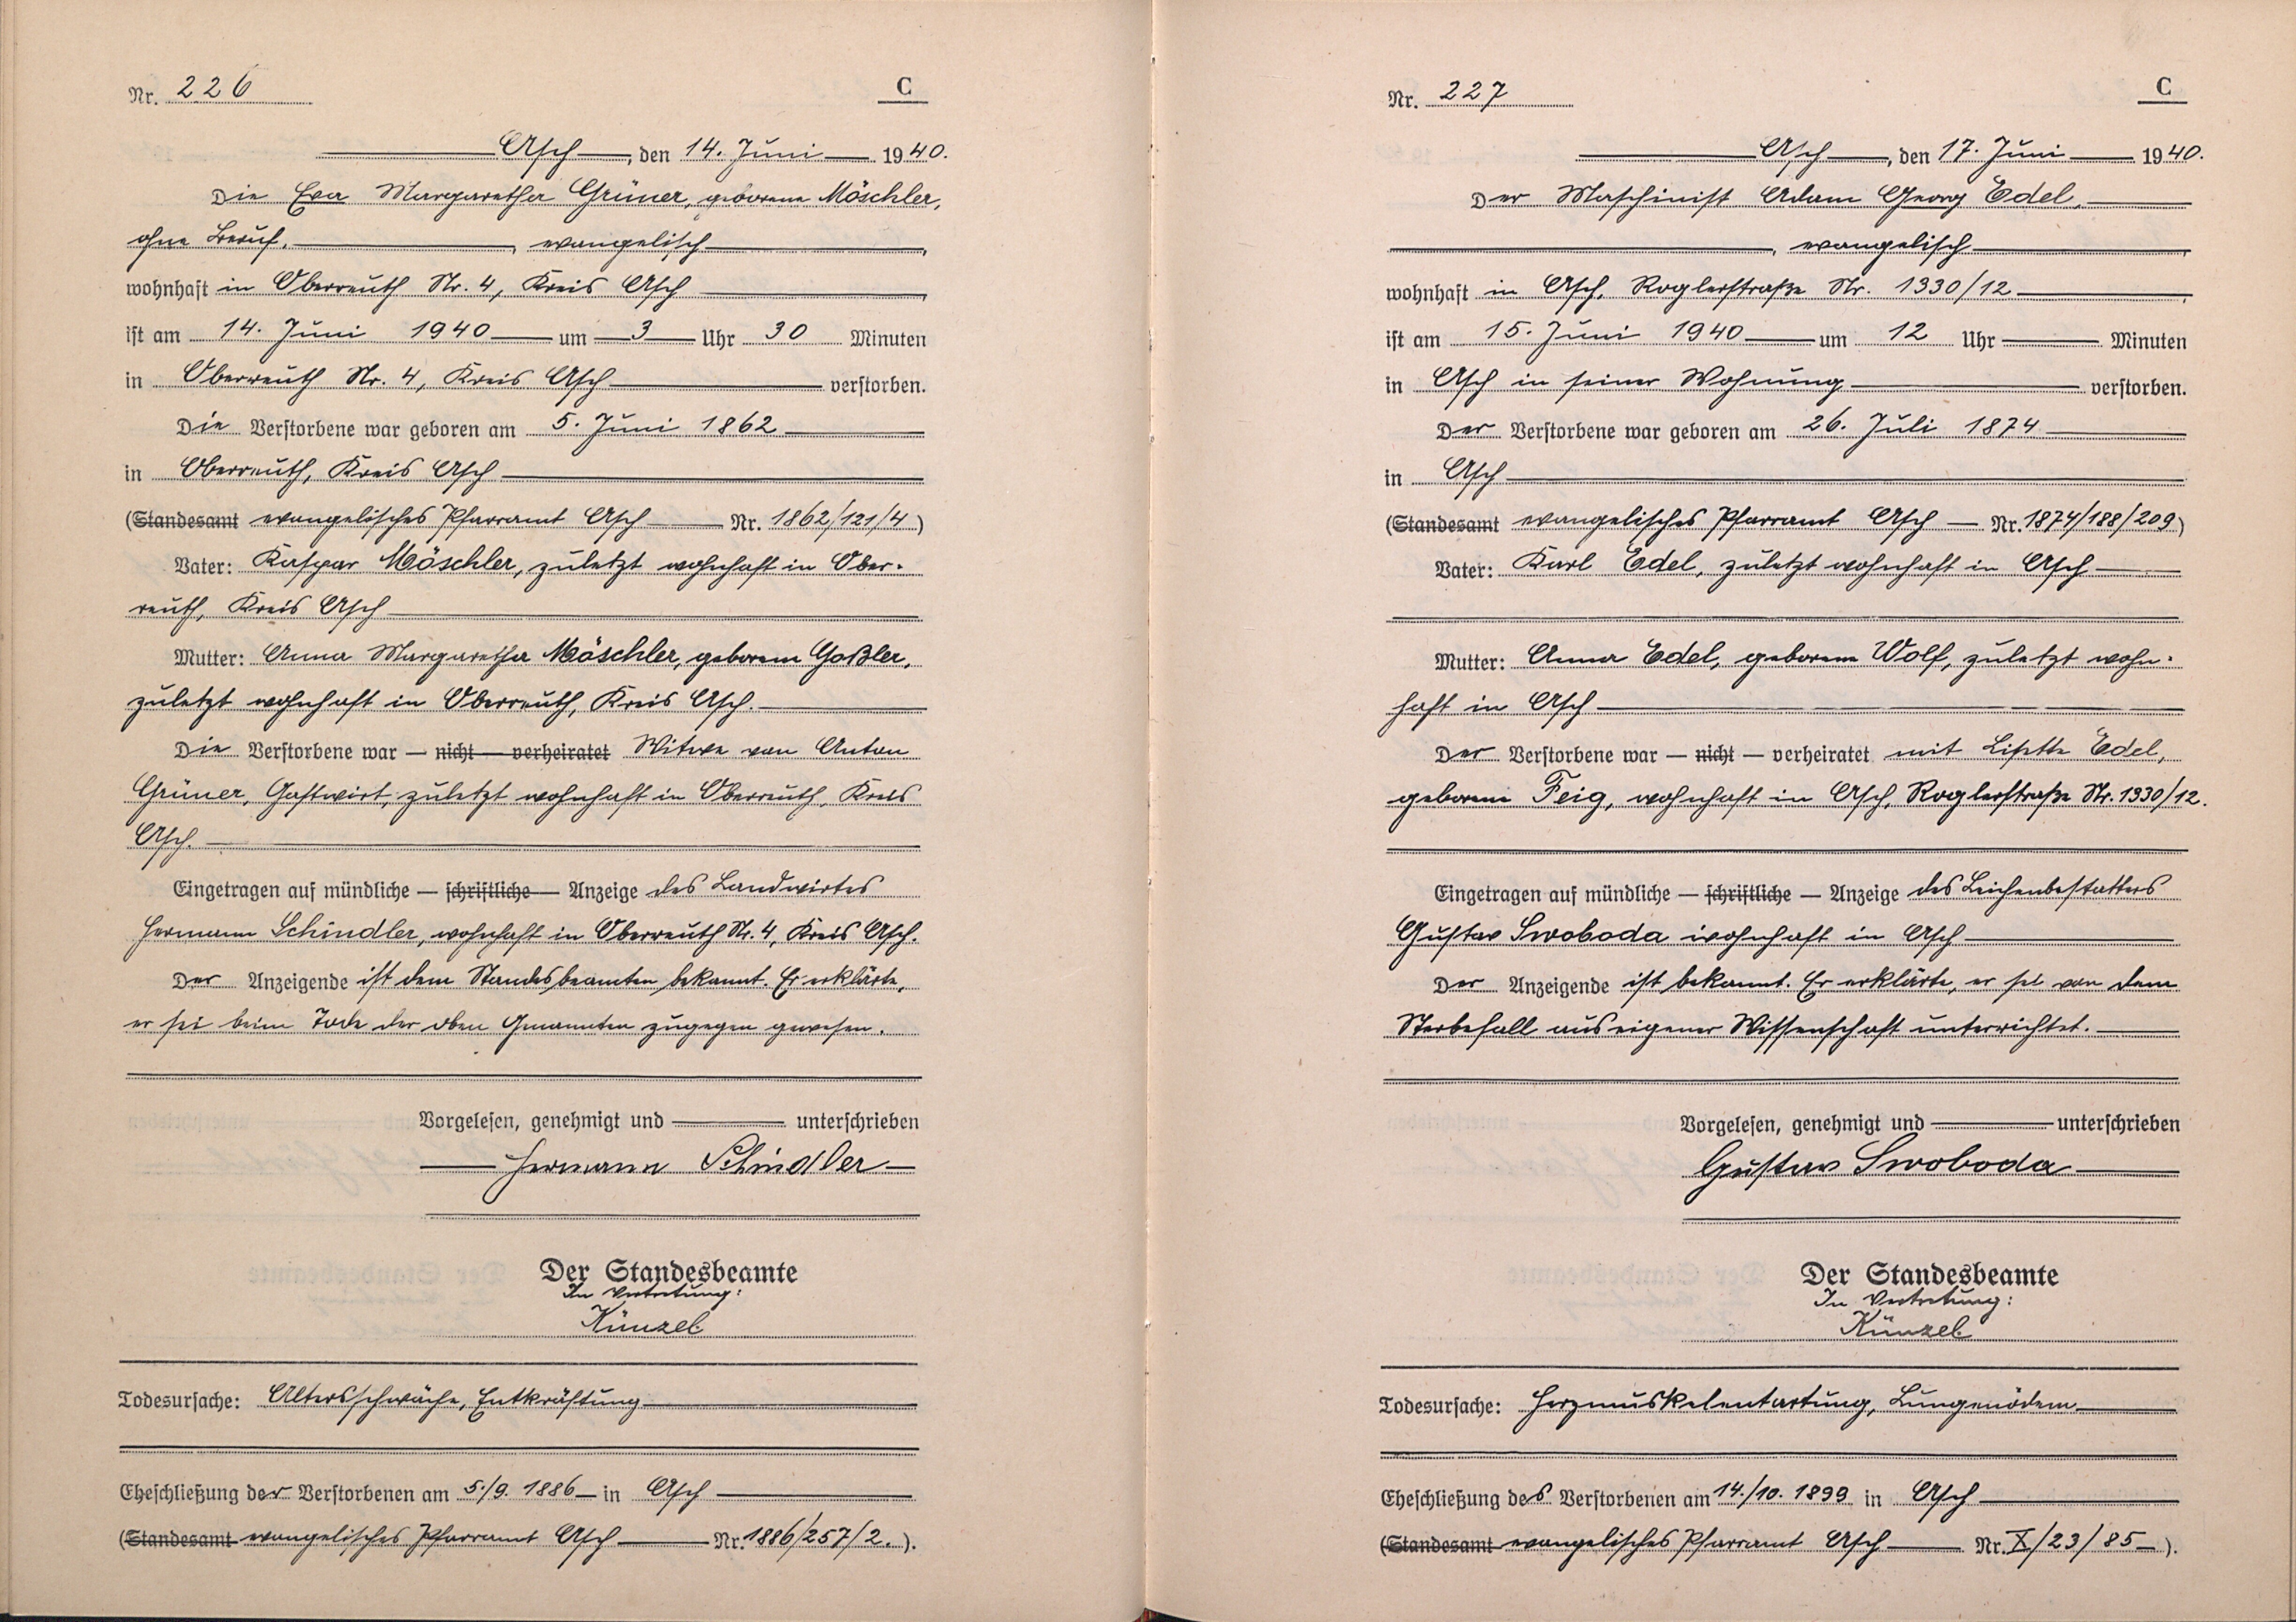 Nr. 226
C
Asch, den 14. Juni 1940.
Die Eva Margaretha Grüner, geborene Möschler,
ohne Beruf, evangelisch,
wohnhaft in Oberreuth Nr. 4, Kreis Asch,
ist am 14. Juni 1940 um 3 Uhr 30 Minuten
in Oberreuth Nr. 4, Kreis Asch verstorben.
Die Verstorbene war geboren am 5. Juni 1862
in Oberreuth, Kreis Asch
(Standesamt evangelisches Pfarramt Asch Nr. 1862/121/4)
Vater: Kaspar Möschler, zuletzt wohnhaft in Ober-
reuth, Kreis Asch
Mutter: Anna Margaretha Möschler, geborene Goßler,
zuletzt wohnhaft in Oberreuth, Kreis Asch.
Die Verstorbene war — nicht — verheiratet Witwe von Anton
Grüner, Gastwirt, zuletzt wohnhaft in Oberreuth, Kreis
Asch.
Eingetragen auf mündliche — schriftliche — Anzeige des Landwirtes
Hermann Schindler, wohnhaft in Oberreuth Nr. 4, Kreis Asch.
Der Anzeigende ist dem Standesbeamten bekannt. Er erklärte,
er sei beim Tode der oben Genannten zugegen gewesen.
Vorgelesen, genehmigt und unterschrieben
Hermann Schindler
Der Standesbeamte
In Vertretung:
Künzel
Todesursache: Altersschwäche, Entkräftung
Eheschließung der Verstorbenen am 5./9. 1886 in Asch
(Standesamt evangelisches Pfarramt Asch Nr. 1886/257/2.).
Nr. 227
C
Asch, den 17. Juni 1940.
Der Maschinist Adam Georg Edel,
, evangelisch,
wohnhaft in Asch, Roglerstraße Nr. 1330/12,
ist am 15. Juni 1940 um 12 Uhr Minuten
in Asch in seiner Wohnung verstorben.
Der Verstorbene war geboren am 26. Juli 1874
in Asch
(Standesamt evangelisches Pfarramt Asch — Nr. 1874/188/209)
Vater: Karl Edel, zuletzt wohnhaft in Asch
Mutter: Anna Edel, geborene Wolf, zuletzt wohn-
haft in Asch
Der Verstorbene war — nicht — verheiratet mit Lisette Edel,
geborene Feig, wohnhaft in Asch, Roglerstraße Nr. 1330/12.
Eingetragen auf mündliche — schriftliche — Anzeige des Leichenbestatters
Gustav Swoboda wohnhaft in Asch
Der Anzeigende ist bekannt. Er erklärte, er sei von dem
Sterbefall aus eigener Wissenschaft unterrichtet.
Vorgelesen, genehmigt und unterschrieben
Gustav Swoboda
Der Standesbeamte
In Vertretung:
Künzel
Todesursache: Herzmuskelentartung, Lungenödem
Eheschließung des Verstorbenen am 14./10. 1899 in Asch
(Standesamt evangelisches Pfarramt Asch Nr. X/23/85).